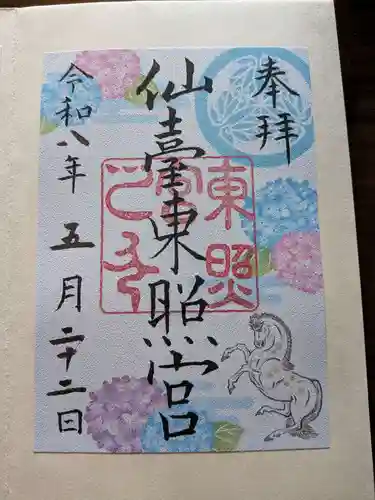 奉拝
仙臺東照宮
東照
宮
令和八年五月二十二日